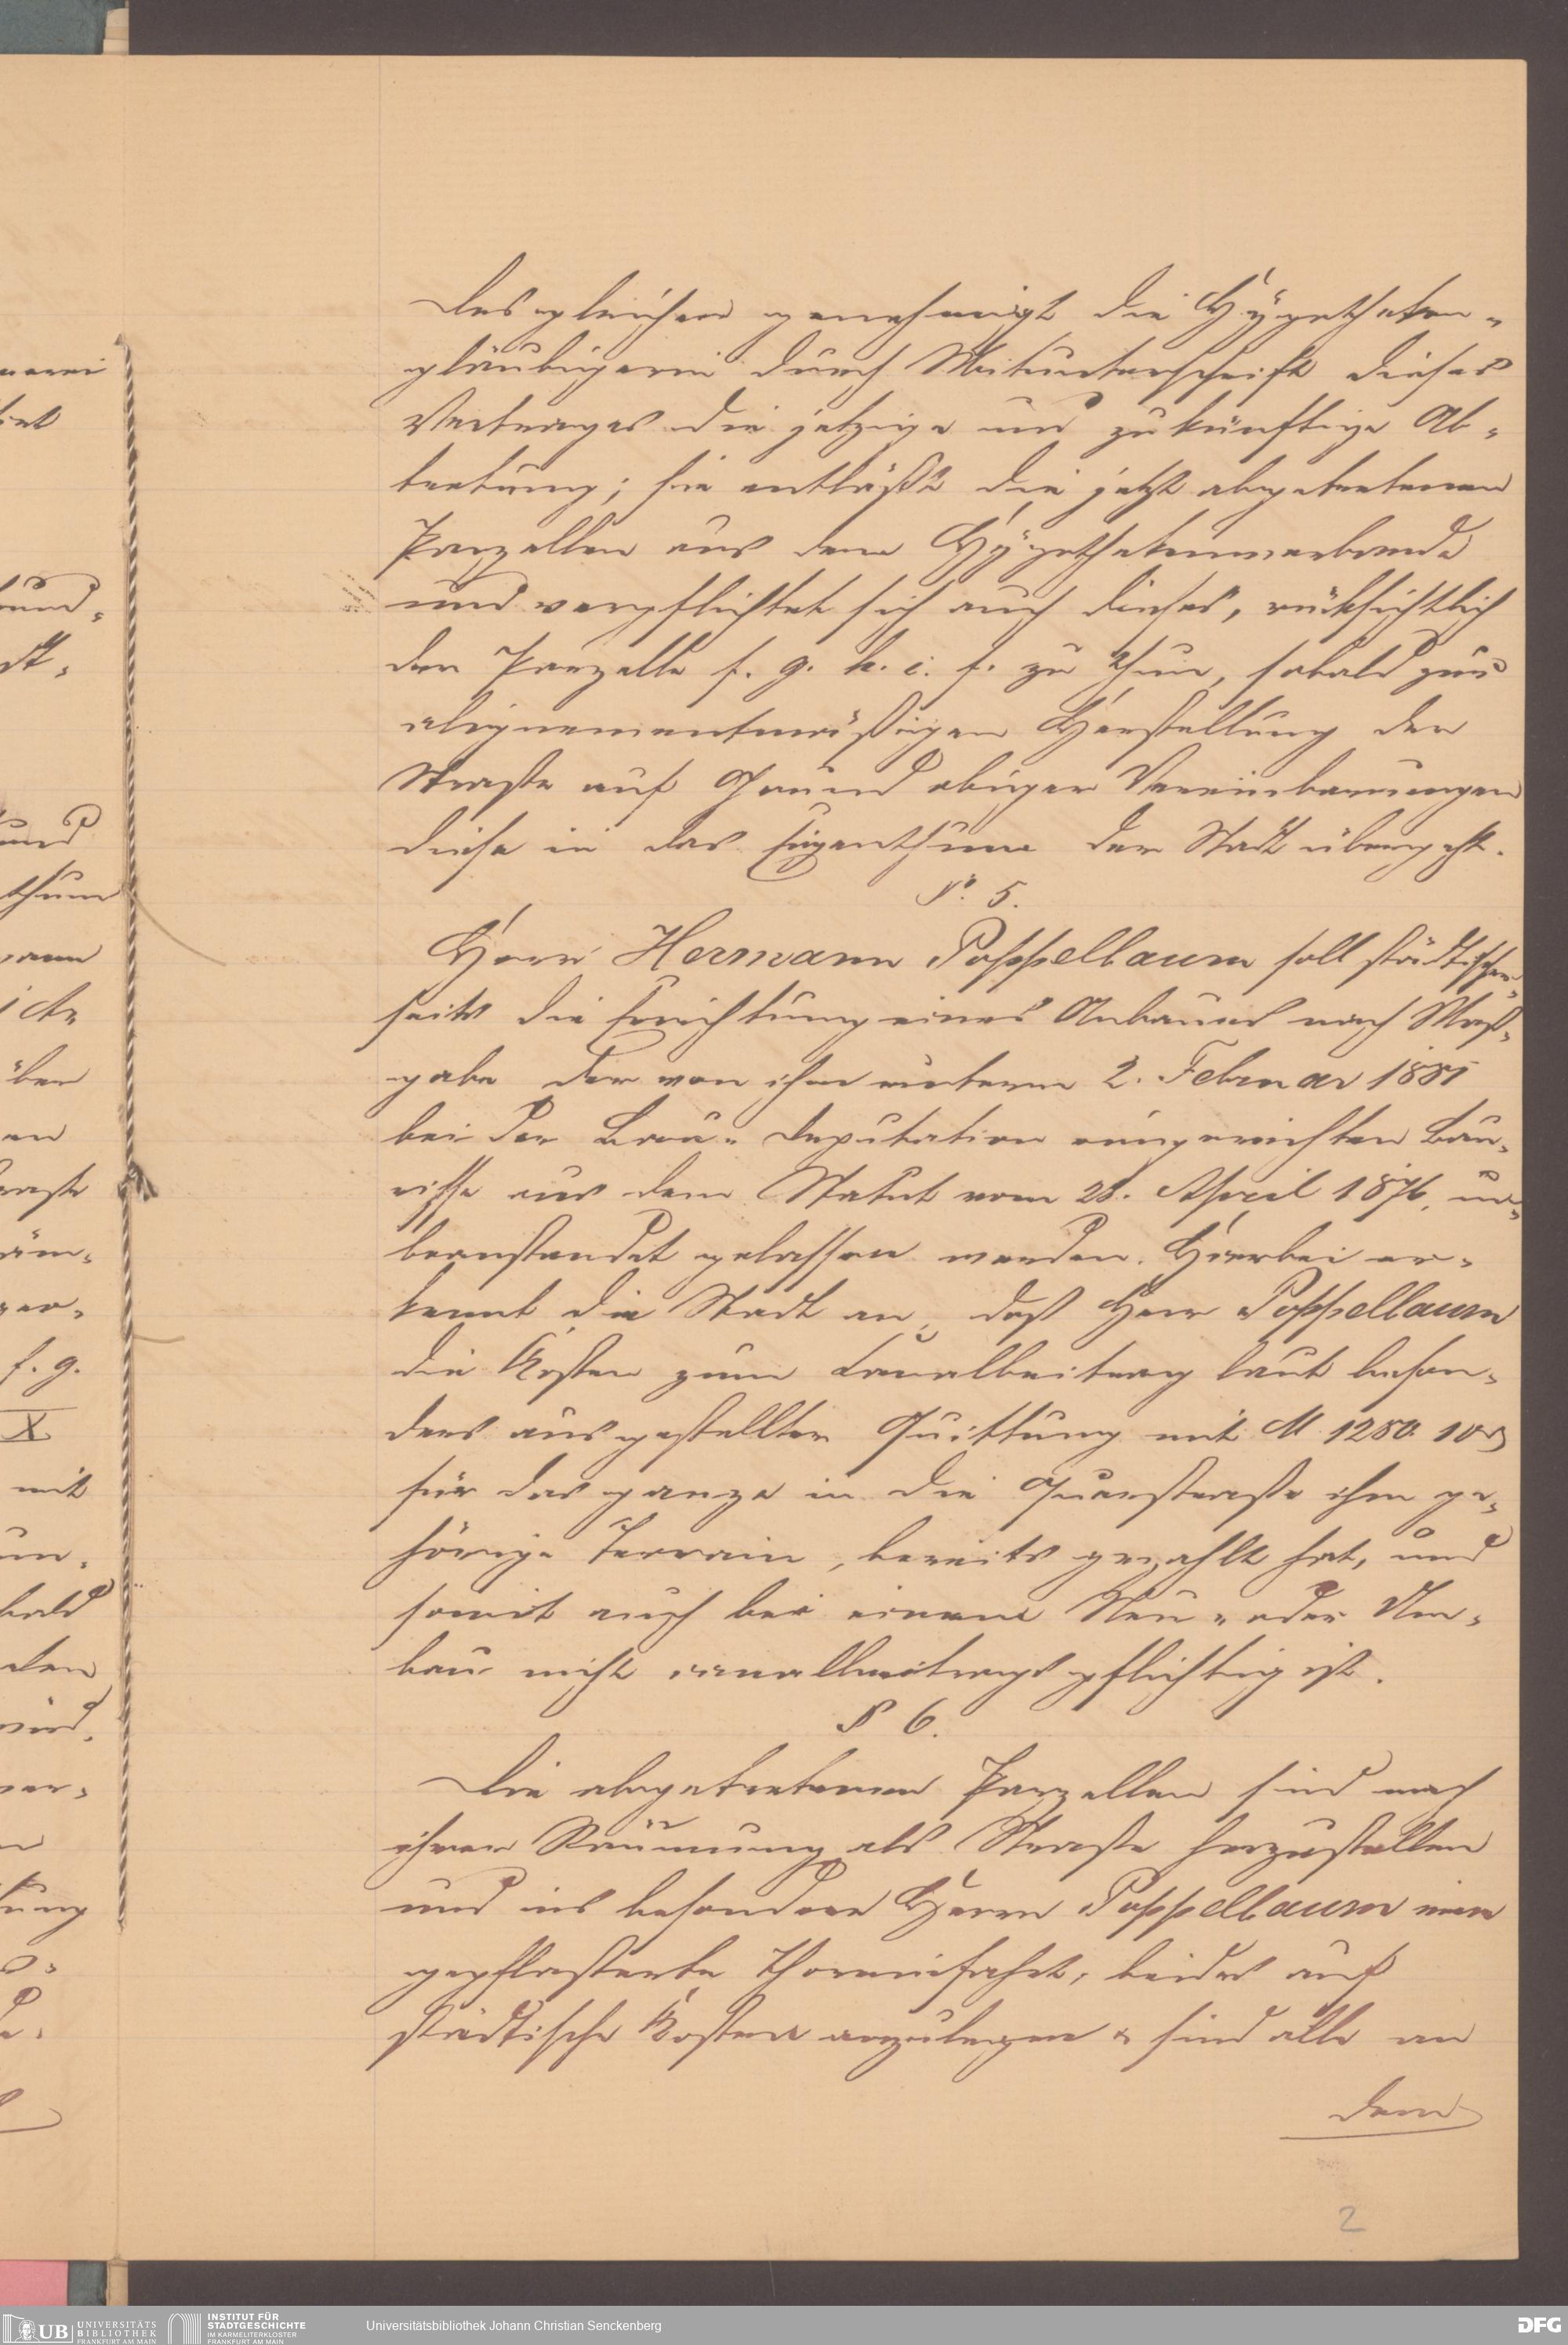 Desgleichen genehmigt die Hypotheken-
gläubigerin durch Mitunterschrift dieses
Vertrages die jetzige und zukünftige Ab-
tretung; sie entläßt die jetzt abgetretenen
Parzellen aus dem Hypothekenverbande
und verpflichtet sich auch dieses, rücksichtlich
der Parzelle f. g. h. i. f. zu thun, sobald zur
alignementmäßigen Herstellung der
Straße auf Grund obiger Vereinbarungen
diese in das Eigenthum der Stadt übergeht.
§. 5.
Herrn Hermann Poppelbaum soll städtischer-
seits die Errichtung eines Anbaues nach Maß-
gabe der von ihm unterm 2. Februar 1881
bei der Bau-Deputation eingereichten Bau-
risse aus dem Statut vom 28. April 1876, un-
beanstandet gelassen werden. Hierbei er-
kennt die Stadt an, daß Herr Poppelbaum
die Kosten zum Canalbeitrag laut beson-
ders ausgestellter Quittung mit M 1280. 10 ₰
für das ganze in die Querstraße ihm ge-
hörige Terrain, bereits gezahlt hat, und
somit auch bei einem Neu- oder Um-
bau nicht canalbeitragspflichtig ist.
§ 6.
Die abgetretenen Parzellen sind nach
ihrer Räumung als Straße herzustellen
und ins besondere Herrn Poppelbaum eine
gepflasterte Thoreinfahrt, beides auf
städtische Kosten anzulegen & sind alle an
dem
2
f. g.
X
mit
UB UNIVERSITÄTS
BIBLIOTHEK
FRANKFURT AM MAIN
INSTITUT FÜR
STADTGESCHICHTE
IM KARMELITERKLOSTER
FRANKFURT AM MAIN
Universitätsbibliothek Johann Christian Senckenberg
DFG